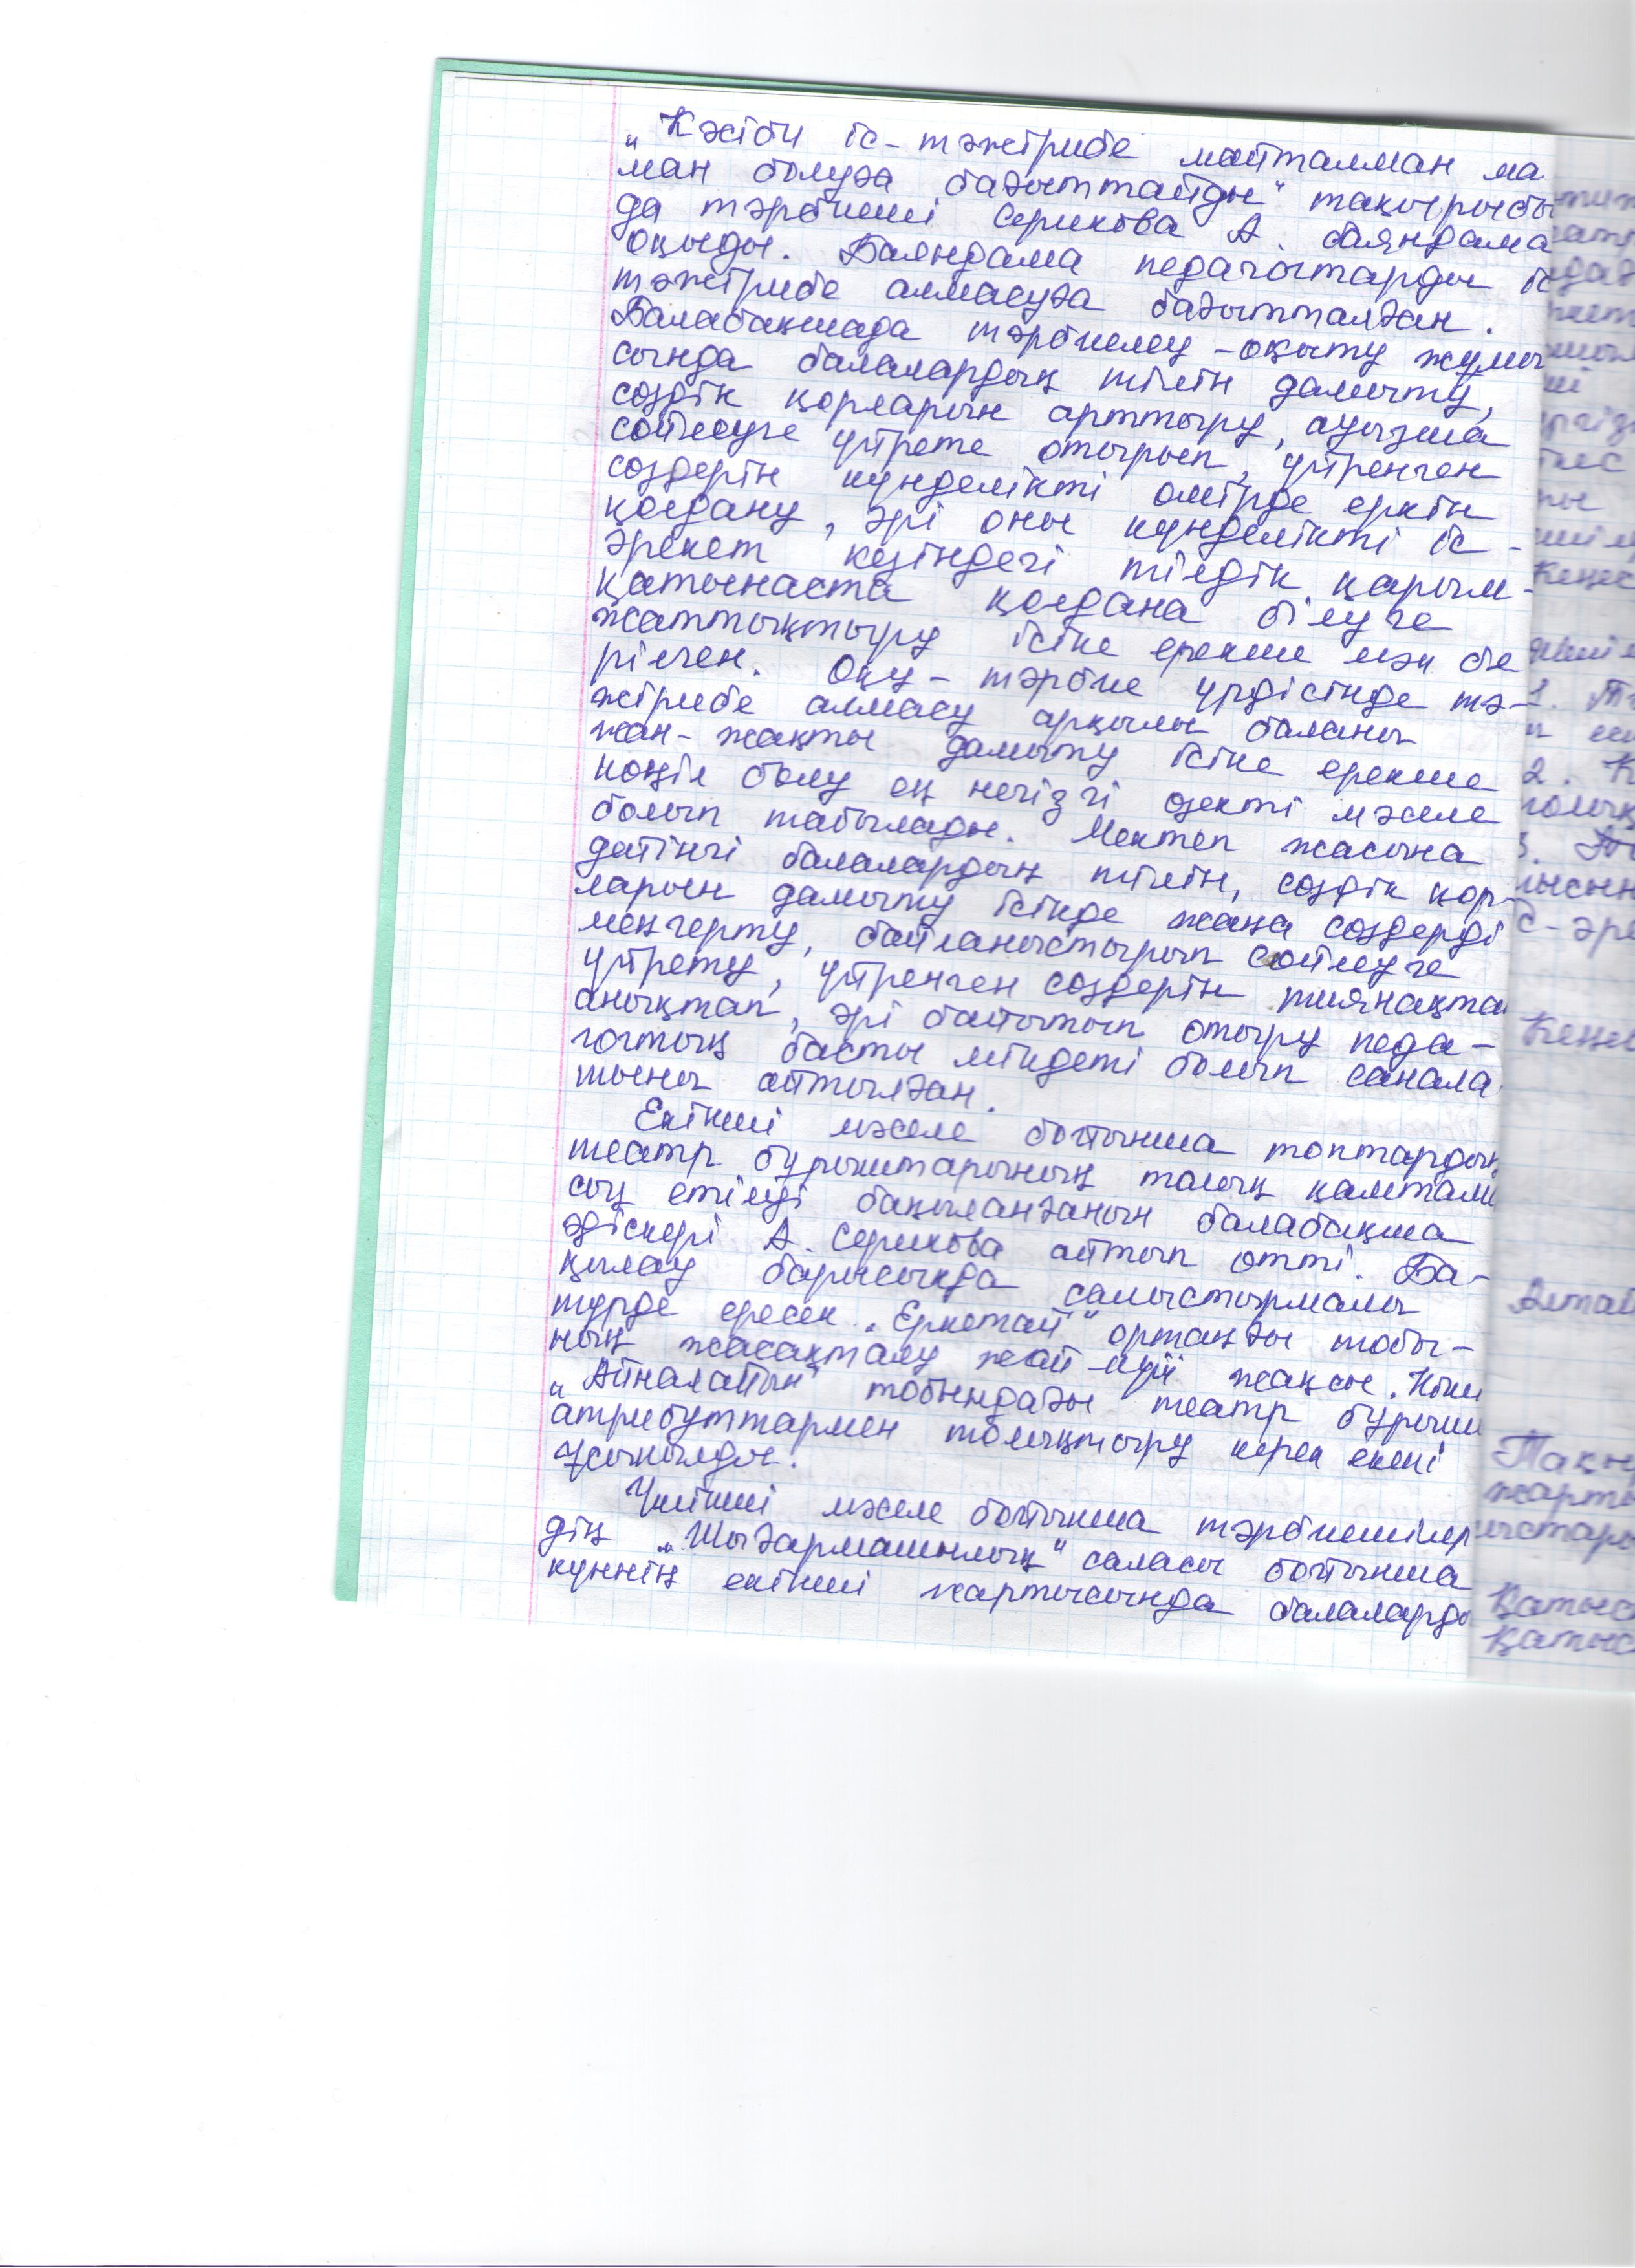 „Кәсіби іс-тәжірибе майталман ма
ман болуға бағыттайды" тақырыбы
да тәрбиеші Серикова А. баяндама
оқыды. Баяндама педагогтарды іс
тәжірибе алмасуға бағытталған.
Балабақшада тәрбиелеу-оқыту жұмы
сында балалардың тілін дамыту,
сөздік қорларын арттыру, ауызша
сөйлеуге үйрете отырып, үйренген
сөздерін күнделікті өмірде еркін
қолдану, әрі оны күнделікті іс-
әрекет кезіндегі тілдік қарым-
қатынаста қолдана білуге
жаттықтыру ісіне ерекше мән бе
рілген. Оқу-тәрбие үрдісінде тә-
жірибе алмасу арқылы баланы
жан-жақты дамыту ісіне ерекше
көңіл бөлу ең негізгі өзекті мәселе
болып табылады. Мектеп жасына
дейінгі балалардың тілін, сөздік қор-
ларын дамыту ісінде жаңа сөздерді
меңгерту, байланыстырып сөйлеуге
үйрету, үйренген сөздерін тиянақта
анықтап, әрі байытып отыру педа-
гогтың басты міндеті болып санала
тыны айтылған.
Екінші мәселе бойынша топтардың
театр бұрыштарының толық қамталы
сың етілуі бақыланғанын балабақша
әдіскері А. Серикова айтып өтті. Ба-
қылау барысында салыстырмалы
түрде ересек „Еркетай" ортаңғы тобы-
ның жасақталу жай-күйі жақсы. Кіші
„Айналайын" тобындағы театр бұрыш
атрибуттармен толықтыру керек екені
ұсынылды.
Үшінші мәселе бойынша тәрбиешілер
дің „Шығармашылық" саласы бойынша
күннің екінші жартысында балаларды